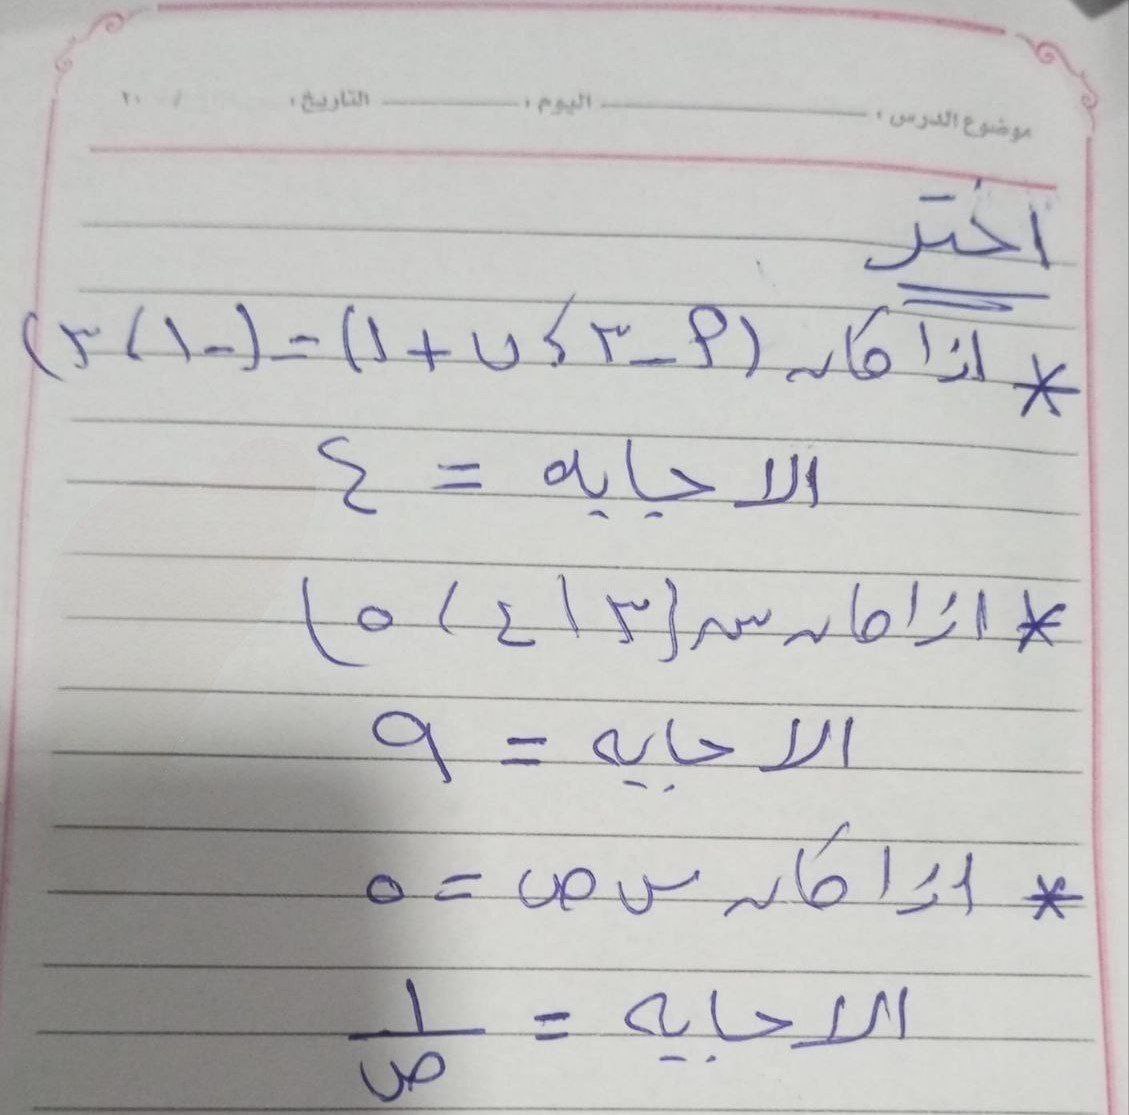 موضوع الدرس : اليوم : التاريخ : / ٢٠
اختر
* اذا كان (٩ - ٣ ، ن + ١) = (-١ ، ٣)
الاجابه = ٤
* اذا كان س {٣ ، ٤ ، ٥}
الاجابه = ٩
* اذا كان س ص = ٥
الاجابه = ١/ص